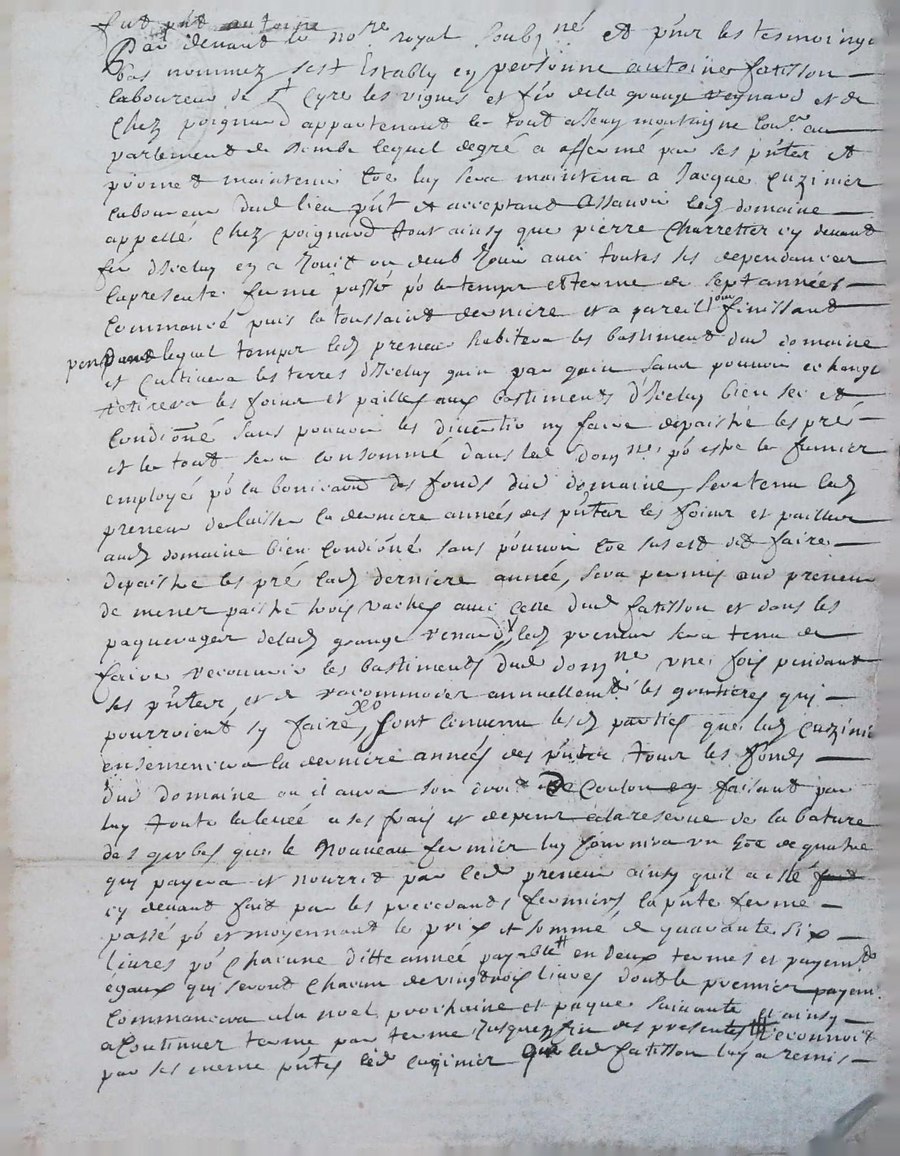 fut pnt antoine
Par devant le no^re royal soubz^né et pnts les tesmoings
bas nommez sest Estably en personne antoine fatisson
laboureur de S^t Cyre les vignes et fer de la grange regnard et de
Chez poignard appartenant le tout a Cons^er au
parlement de dombe lequel degré a affermé par ses pntes et
promet maintenir a Jacque cuzinier
laboureur dud lieu pnt et acceptant assavoir led domaine
appellé Chez poignard tout ainsy que pierre Charretter cy devant
fer diceluy en a Jouit ou deub Jouir avec toutes ses dependances
la presente ferme passé po le temps et terme de sept années
Commancé puis la toussaint derniere et a pareil jour finissant
pendant lequel temps led preneur habitera les bastiment dud domaine
et Cultivera les terres diceluy gain par gain sans pouvoir echangé
retirera les foins et pailles aux bastiments diceluy bien sec et
Condiõné sans pouvoir les divertir ny faire depaistre les pré
et le tout sera Consommé dans led dom^ne po estre le fumier
employé po la bonicaõn des fonds dud domaine, sera tenu led
preneur de laisser la derniere années des pntes les foins et pailles
aud domaine bien Condiõné sans pouvoir faire
depaistre les pré lad derniere année, sera permis aud preneur
de mener paistre trois vaches avec celle dud fatisson et dans les
paquerages de lad grange renard, led preneur sera tenu de
faire recouvrir les bastiments dud dom^ne une fois pendant
ses pntes, et de racommoder annuellement les goutieres qui
pourroient sy faire, sont Convenu lesd parties que led cuzinie
ensemencera la derniere années des pntes tous les fonds
dud domaine ou il aura son droit de Coulon en faisant par
luy toute la levée a ses frais et depens a la reserve de la bature
des gerbes que le nouveau fermier luy fournira un de quatre
qui payera et nourrit par led preneur ainsy quil a esté
cy devant fait par les precedants fermiers, la pnte ferme
passé po et moyennant le prix et somme de quarante six
livres po Chacune ditte année payable en deux termes et payem^ts
egaux qui seront Chacun de vingt trois livres dont le premier payem^t
Commancera a la noel prochaine et paque suivante et ainsy
a Continuer terme par terme Jusques fin des presentes reconnoit
par ses meme pntes led cuzinier que led fatisson luy a remis